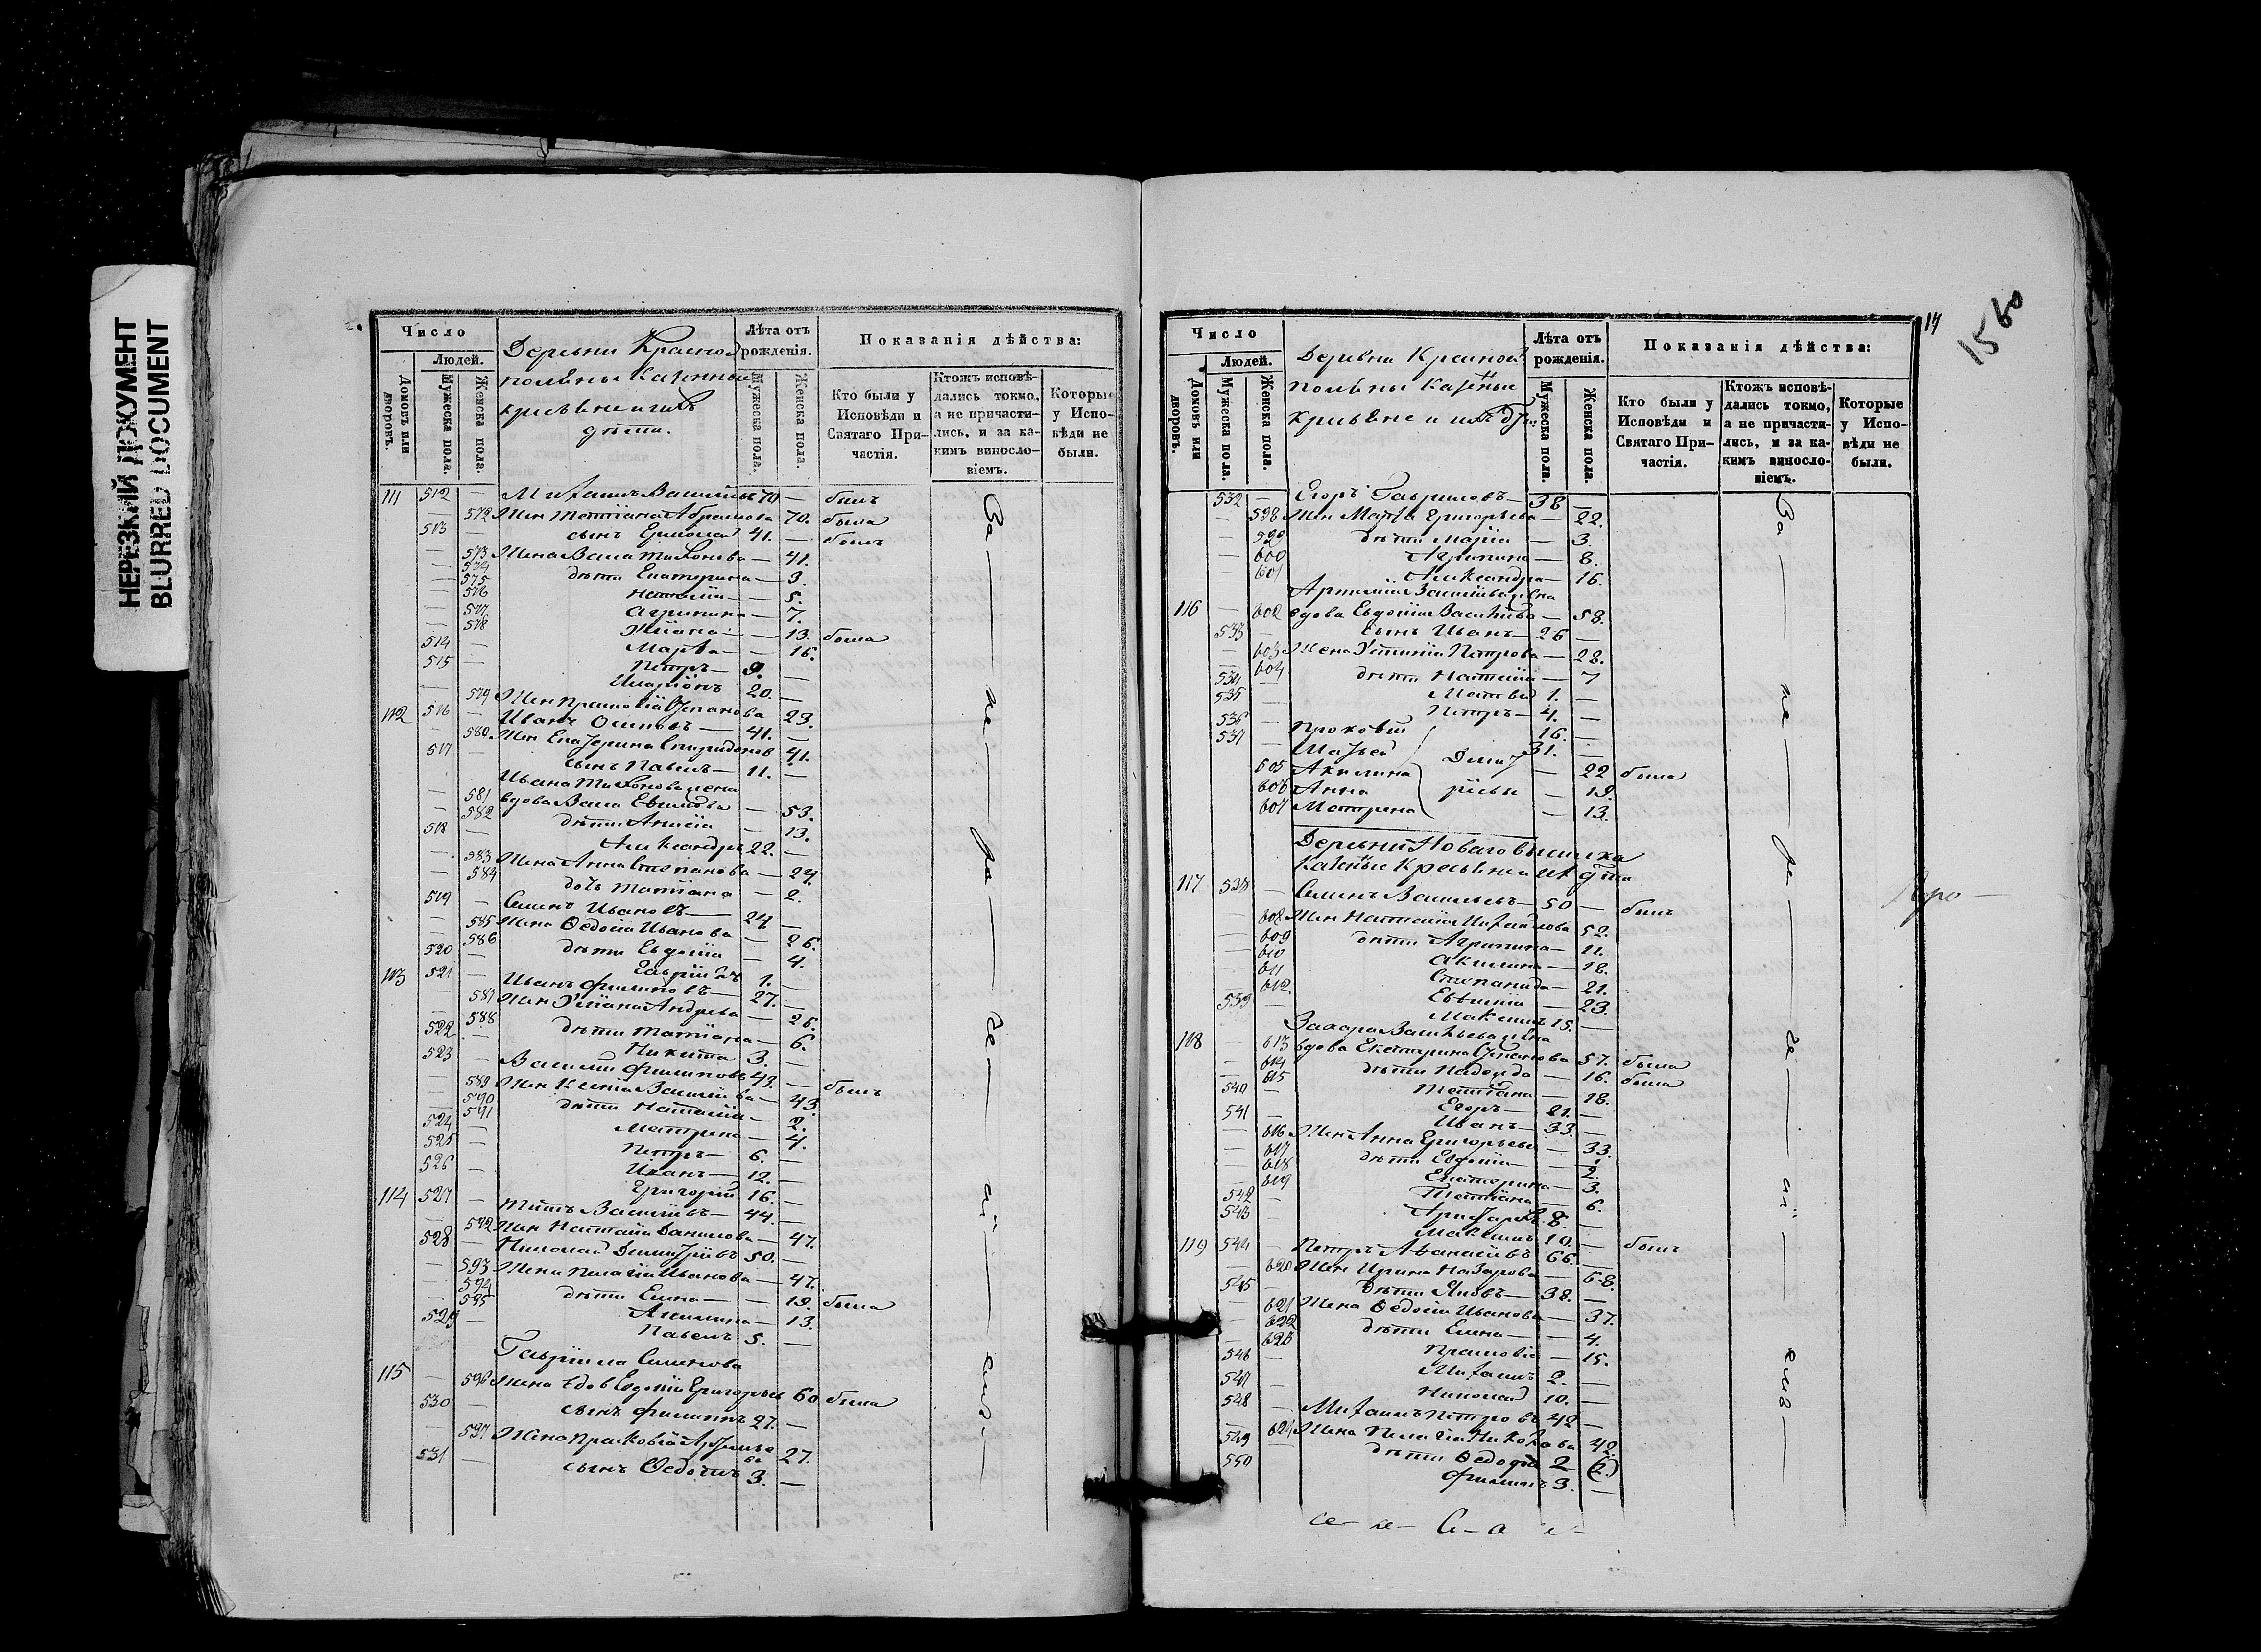 НЕРЕЗКИЙ ДОКУМЕНТ
BLURRED DOCUMENT
Число
Людей.
Домовъ или дворовъ.
Мужеска пола.
Женска пола.
Деревни Красной
поляны Казенные
дѣти.
Лѣта отъ рожденія.
Мужеска пола.
Женска пола.
Показанія дѣйства:
Кто были у Исповѣди и Святаго Причастія.
Ктожъ исповѣдались токмо, а не причастились, и за какимъ винословіемъ.
Которые у Исповѣди не были.
111 512 — Михаилъ Васильевъ 70 — былъ
— 572 Жен Татіана Абрамова 70. была
513 — сынъ Ермолай 41. — былъ
— 573 Жена Васса Тихонова — 41.
— 574 дѣти Екатерина — 3.
— 575 Наталія — 5.
— 576 Агрипина — 7.
— 577 Уліана — 13. была
— 578 Марѳа — 16.
514 — Петръ — 9. —
515 — Иларіонъ 20. —
— 579 Жен Прасковія Степанова 23.
112 516 — Иванъ Осиповъ — 41. —
— 580. Жен Екатерина Спиридонов 41.
517 — сынъ Павелъ — 11. —
Ивана Тихонова жена
— 581 вдова Васса Евѳимова — 53.
— 582 дѣти Анисія — 13.
518 — Александръ 22. —
— 583 Жена Анна Степанова — 24.
— 584 дочь Татіана — 2.
519 — Семенъ Ивановъ — 24. —
— 585 Жена Ѳедосія Иванова — 26.
— 586 дѣти Евдокія — 4.
520 — Гавріилъ 1. —
113 521 — Иванъ Филиповъ — 27. —
— 587 Жен Уліана Андреева — 26.
— 588 дѣти Татіана — 6.
522 — Никита 3. —
523 — Василій Филиповъ 43. — былъ
— 589 Жен Ксенія Васильева — 43.
— 590 дѣти Наталія — 2.
— 591 Матрена — 4.
524 — Петръ — 6. —
525 — Иванъ — 12. —
526 — Григорій 16. —
114 527 — Титъ Васильевъ — 44. —
— 592 Жен Наталія Данилова — 47.
528 — Николай Димитріевъ 50. —
— 593 Жена Пелагія Иванова — 47.
— 594 дѣти Елена — 19. была
— 595 Акилина — 13.
529 — Павелъ 5. —
Гавріила Семенова
115 — 596 жена вдов Евдокія Григорьев 60 была
530 — сынъ Филиппъ 27. —
— 597 Жена Прасковія Артемьева 27.
531 — сынъ Ѳедотъ 3. —
14
1560
Число
Людей.
Домовъ или дворовъ.
Мужеска пола.
Женска пола.
Деревни Красной
поляны Казенные
Лѣта отъ рожденія.
Мужеска пола.
Женска пола.
Показанія дѣйства:
Кто были у Исповѣди и Святаго Причастія.
Ктожъ исповѣдались токмо, а не причастились, и за какимъ винословіемъ.
Которые у Исповѣди не были.
532 — Егоръ Гавриловъ — 38 —
— 598 Жен Марѳа Григорьева — 22.
— 599 дѣти Марія — 3.
— 600 Агрипина — 8.
— 601 Александра — 16.
Артемія Васильева жена
116 — 602 вдова Евдокія Васильева — 58.
533 — сынъ Иванъ — 26 —
— 603 Жена Устинія Петрова — 28.
— 604 дѣти Наталія — 7
534 — Матвей 1. —
535 — Петръ — 4. —
536 — Прокофій 16. —
537 — 31. —
605 Акилина — 22 была
606 Анна — 19.
607 Матрена — 13.
Деревни Новаго выселка
117 538 — Семенъ Васильевъ — 50 — былъ
— 608 Жен Наталія Михайлова 52.
— 609 дѣти Агрипина — 11.
— 610 Акилина — 18.
— 611 Степанида — 21.
— 612 Евѳимія — 23.
539 — Максимъ 15. —
Захара Васильева жена
118 613 вдова Екатерина Степанова 57. была
— 614 дѣти Надежда — 16. была
— 615 Татіана — 18.
540 — Егоръ — 21. —
541 — Иванъ — 33. —
616 Жен Анна Григорьева — 33.
— 617 дѣти Евдокія — 2.
— 618 Екатерина — 3.
— 619 Татіана — 6.
542 — 8. —
543 — Максимъ 10. —
119 544 — Петръ Аѳанасьевъ 66. — былъ
— 620 Жен Ирина Назарова — 68.
545 — дѣти Яковъ — 38. —
— 621 Жена Ѳедосія Иванова — 37.
— 622 дѣти Елена — 4.
— 623 Прасковія — 15.
546 — Михаилъ 2. —
547 — Николай 10. —
548 — Михаилъ Петровъ 42 —
— 624 Жена Пелагія 42.
549 — дѣти 2
550 Филипъ 3. —